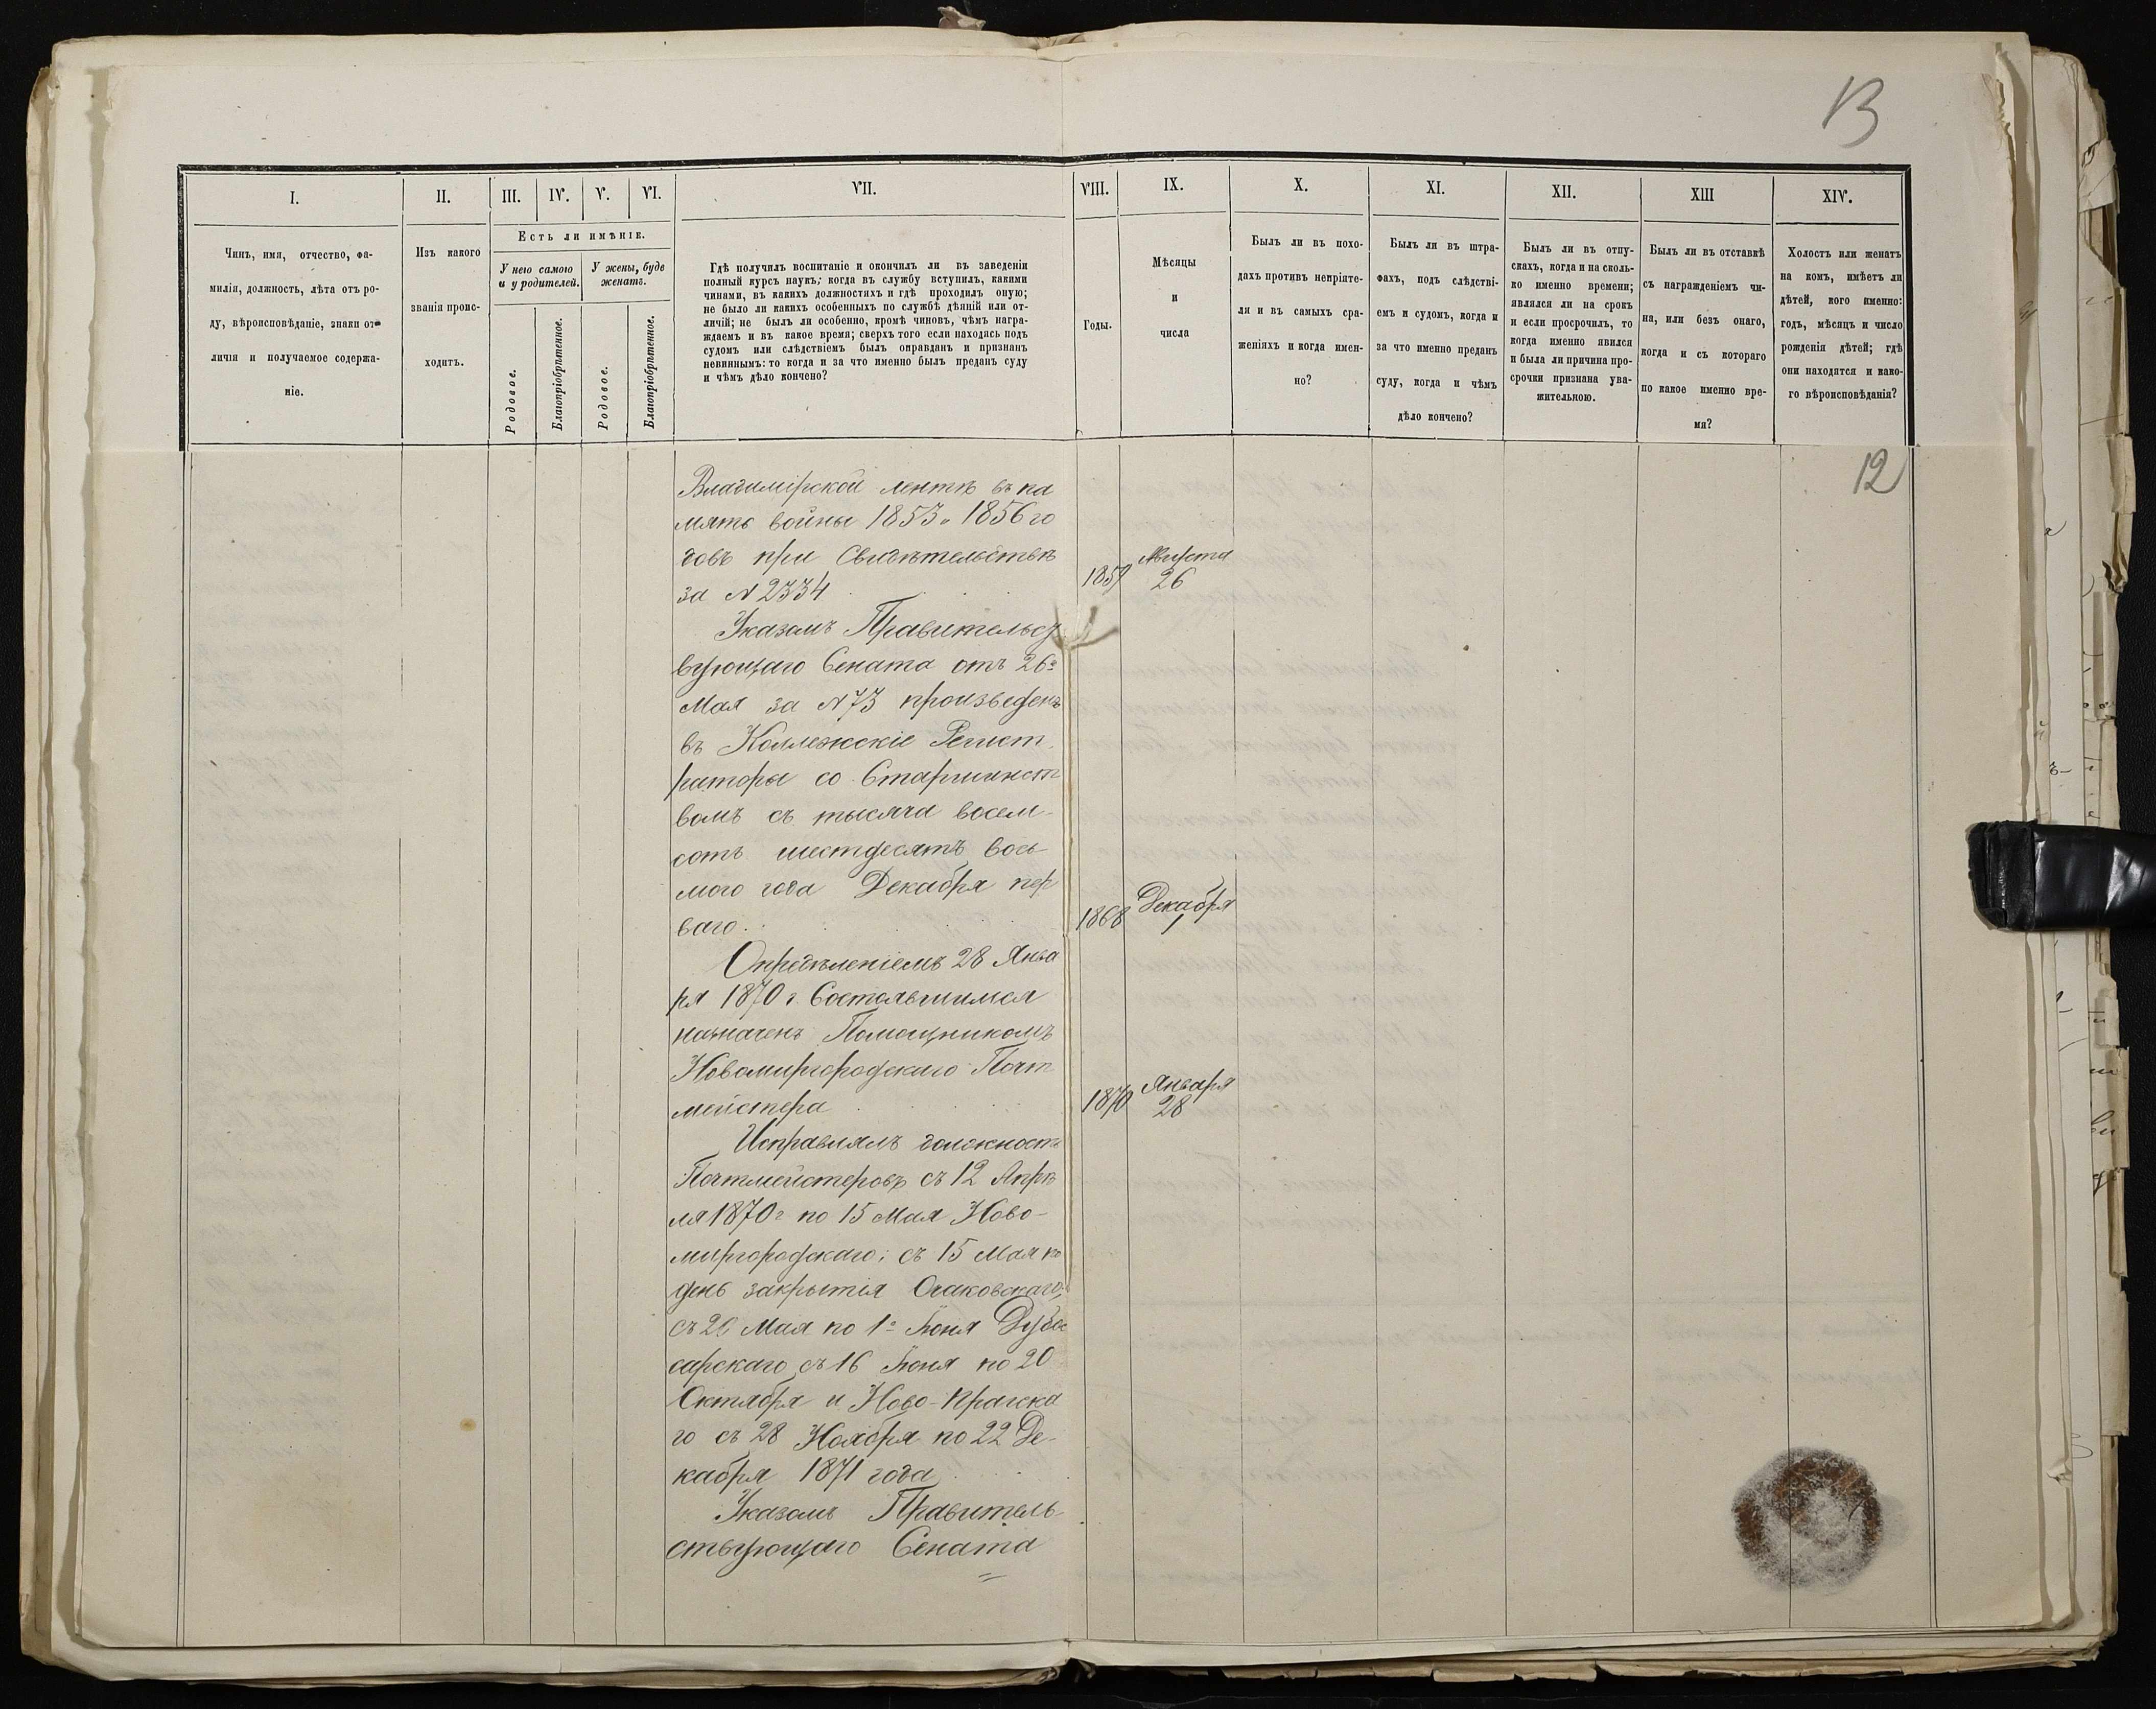 13
I.
II.
III.
IV.
V.
VI.
VII.
VIII.
IX.
X.
XI.
XII.
XIII
XIV.
Чинъ, имя, отчество, фа-
милія, должность, лѣта отъ ро-
ду, вѣроисповѣданіе, знаки от-
личія и получаемое содержа-
ніе.
Изъ какого
званія проис-
ходитъ.
Есть ли имѣніе.
У него самого
и у родителей.
У жены, буде
женатъ.
Родовое.
Благопріобрѣтенное.
Родовое.
Благопріобрѣтенное.
Гдѣ получилъ воспитаніе и окончилъ ли въ заведеніи
полный курсъ наукъ; когда въ службу вступилъ, какими
чинами, въ какихъ должностяхъ и гдѣ проходилъ оную;
не было ли какихъ особенныхъ по службѣ дѣяній или от-
личій; не былъ ли особенно, кромѣ чиновъ, чѣмъ награ-
ждаемъ и въ какое время; сверхъ того если находясь подъ
судомъ или слѣдствіемъ былъ оправданъ и признанъ
невиннымъ: то когда и за что именно былъ преданъ суду
и чѣмъ дѣло кончено?
Годы.
Мѣсяцы
и
числа
Былъ ли въ похо-
дахъ противъ непріяте-
ля и въ самыхъ сра-
женіяхъ и когда имен-
но?
Былъ ли въ штра-
фахъ, подъ слѣдстві-
емъ и судомъ, когда и
за что именно преданъ
суду, когда и чѣмъ
дѣло кончено?
Былъ ли въ отпу-
скахъ, когда и на сколь-
ко именно времени;
являлся ли на срокъ
и если просрочилъ, то
когда именно явился
и была ли причина про-
срочки признана ува-
жительною.
Былъ ли въ отставкѣ
съ награжденіемъ чи-
на, или безъ онаго,
когда и съ котораго
по какое именно вре-
мя?
Холостъ или женатъ
на комъ, имѣетъ ли
дѣтей, кого именно:
годъ, мѣсяцъ и число
рожденія дѣтей; гдѣ
они находятся и како-
го вѣроисповѣданія?
12
Владимірской лентѣ въ па
мять войны 1853 и 1856 го
довъ при Свидѣтельствѣ
за N 2334
1859 Августа 26
Указомъ Правительст
вующаго Сената отъ 26го
Мая за N 73 произведенъ
въ Коллежскіе Регист
раторы со Старшинст
вомъ съ тысяча восем-
сотъ шестдесятъ вось-
мого года Декабря пер
ваго.
1868 Декабря 1
Опредѣленіемъ 28 Янва
ря 1870 г. Состоявшимся
назначенъ Помощникомъ
Новомиргородскаго Почт
мейстера
1870 Января 28
Исправлялъ должность
Почтмейстеровъ съ 12 Апрѣ
ля 1870 г по 15 Мая Ново-
миргородскаго; съ 15 Мая по
день закрытія Очаковскаго;
Мая по 1е Іюня Дубос
сарскаго съ 16 Іюня по 20
Октября и Ново-Прагска
го съ 28 Ноября по 22 Де-
кабря 1871 года
Указомъ Правитель
ствующаго Сената